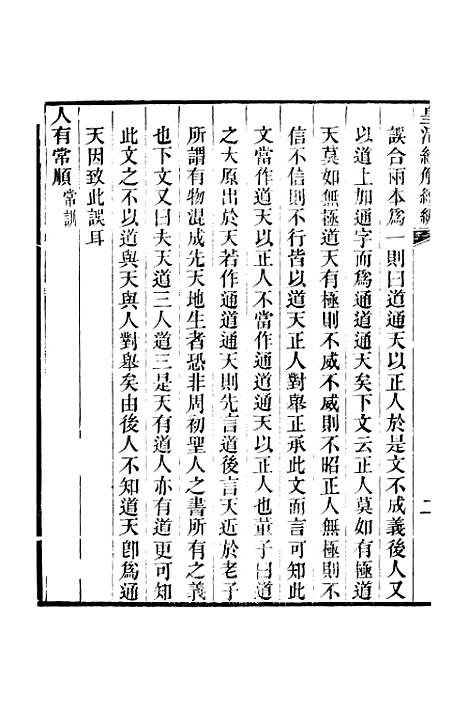 皇清經解續編
二
誤合兩本爲一則曰道通天以正人於是文不成義後人又
以道上加通字而爲通道通天矣下文云正人莫如有極道
天莫如無極道天有極則不威不威則不昭正人無極則不
信不信則不行皆以道天正人對舉正承此文而言可知此
文當作道天以正人不當作通道通天以正人也董子曰道
之大原出於天若作通道通天則先言道後言天近於老子
所謂有物混成先天地生者恐非周初聖人之書所有之義
也下文又曰夫天道三人道三是天有道人亦有道更可知
此文之不以道與天與人對舉矣由後人不知道天卽爲通
天因致此誤耳
人有常順常訓